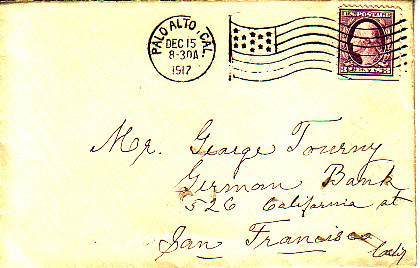 PALO ALTO, CAL.
DEC 15
8-30A
1917
U.S. POSTAGE
Mr. George Tourny
German Bank
526 California at
San Francisco
Calif